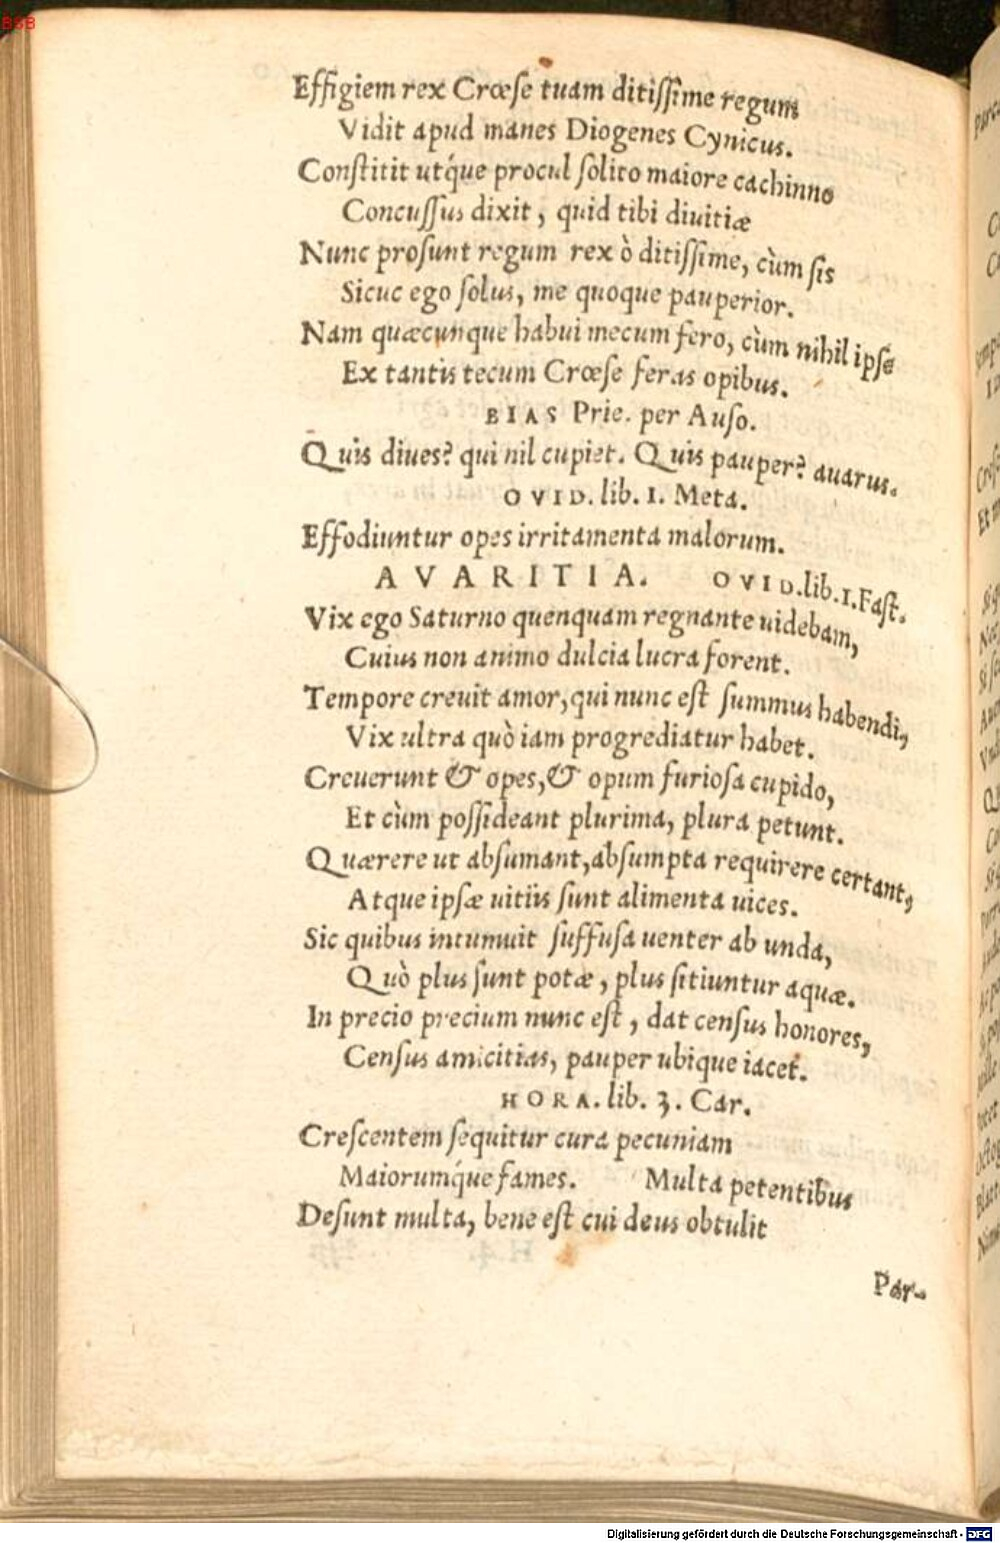 BSB
Effigiem rex Crœse tuam ditiſſime regum
Vidit apud manes Diogenes Cynicus.
Conſtitit utq́ue procul ſolito maiore cachinno
Concuſſus dixit, quid tibi diuitiæ
Nunc proſunt regum rex ò ditiſſime, cùm ſis
Sicuc ego ſolus, me quoque pauperior.
Nam quæcunque habui mecum fero, cùm nihil ipſe
Ex tantis tecum Crœſe feras opibus.
BIAS Prie. per Auſo.
Quis diues? qui nil cupiet. Quis pauper? auarus.
OVID. lib. 1. Meta.
Effodiuntur opes irritamenta malorum.
AVARITIA. OVID. lib. 1. Faſt.
Vix ego Saturno quenquam regnante uidebam,
Cuius non animo dulcia lucra forent.
Tempore creuit amor, qui nunc eſt ſummus habendi,
Vix ultra quò iam progrediatur habet.
Creuerunt & opes, & opum furioſa cupido,
Et cùm poſſideant plurima, plura petunt.
Quærere ut abſumant, abſumpta requirere certant,
Atque ipſæ uitiis ſunt alimenta uices.
Sic quibus intumuit ſuffuſa uenter ab unda,
Quò plus ſunt potæ, plus ſitiuntur aquæ.
In precio precium nunc eſt, dat cenſus honores,
Cenſus amicitias, pauper ubique iacet.
HORA. lib. 3. Car.
Creſcentem ſequitur cura pecuniam
Maiorumq́ue fames. Multa petentibus
Deſunt multa, bene eſt cui deus obtulit
Par-
Digitalisierung gefördert durch die Deutsche Forschungsgemeinschaft - DFG